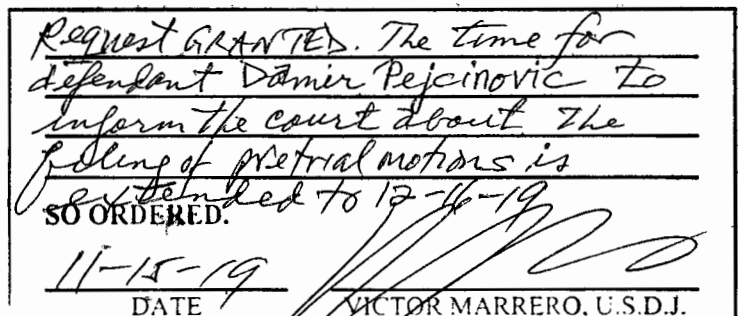 Request GRANTED. The time for
defendant Damir Pejcinovic to
inform the court about the
filing of pretrial motions is
extended to 12-16-19
SO ORDERED.
11-15-19
DATE VICTOR MARRERO, U.S.D.J.